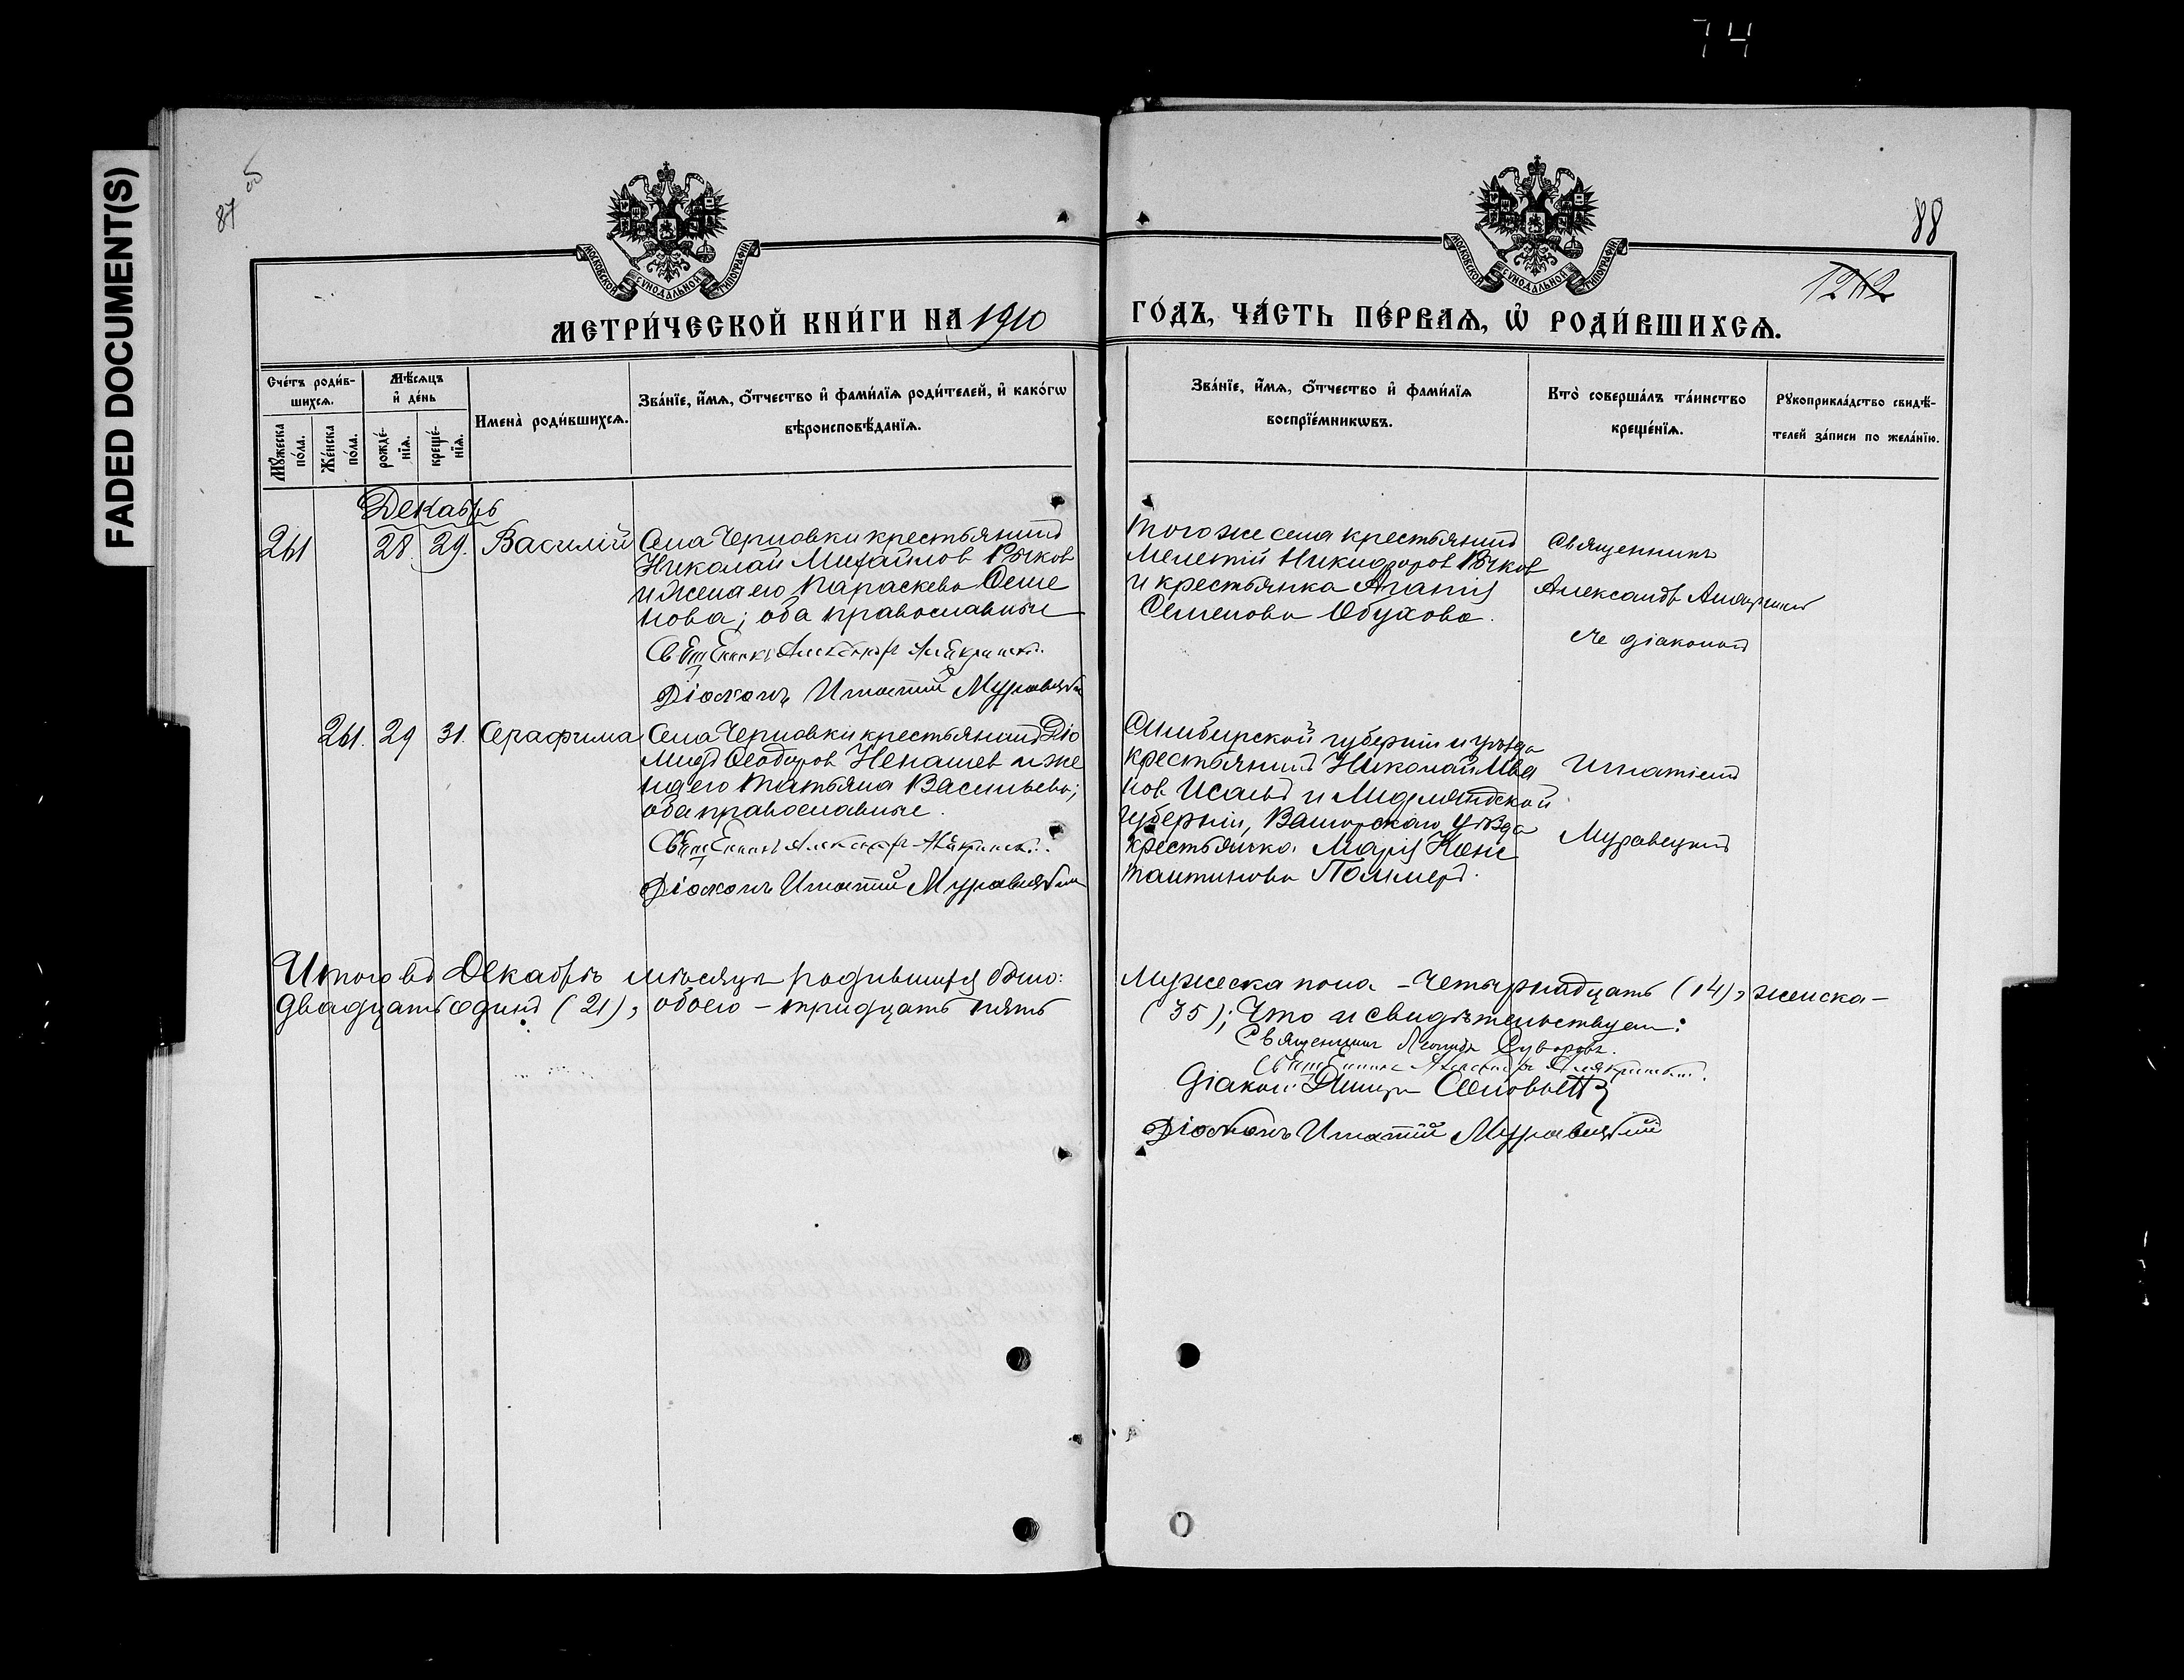 74
FADED DOCUMENT(S)
87 об
88
1262
МОСКОВСКОЙ СѴНОДАЛЬНОЙ ТИПОГРАФІИ
МОСКОВСКОЙ СѴНОДАЛЬНОЙ ТИПОГРАФІИ
МЕТРИ́ЧЕСКОЙ КНИ́ГИ НА 1910
ГО́ДЪ, ЧА́СТЬ ПЕ́РВАѦ, Ѡ҆ РОДИ́ВШИХСѦ.
Сче́тъ роди́в-
шихсѧ.
Мꙋ́жеска по́ла.
Же́нска по́ла.
Мѣ́сѧцъ
и҆ де́нь
рожде́-
нїѧ.
креще́-
нїѧ.
Имена̀ роди́вшихсѧ.
Зва́нїе, и҆́мѧ, ѻ҆́тчество и҆ фами́лїѧ роди́телей, и҆ како́гѡ
вѣроисповѣ́данїѧ.
Зва́нїе, и҆́мѧ, ѻ҆́тчество и҆ фами́лїѧ
воспрїе́мникѡвъ.
Кто̀ соверша́лъ та́инство
креще́нїѧ.
Рꙋкоприкла́дство свидѣ́-
телей за́писи по жела́нїю.
Декабрь
261 28. 29. Василій
Села Черновки крестьянинъ
Николай Михайлов Рѣчков
и жена его Параскева Семе
нова; оба православные
Священникъ Александръ
Діаконъ Игнатій Муравецкій
Того же села крестьянинъ
Мелетій Никифоров Рѣчков
и крестьянка Агапія
Семенова Обухова.
Священникъ
Александръ
съ діакономъ
261. 29 31. Серафима
Села Черновки крестьянинъ Діо
мидъ Феодоров Ненашев и же
на его Татьяна Васильева;
оба православные.
Священникъ Александръ
Діаконъ Игнатій Муравецкій
Симбирской губерніи и уѣзда
крестьянинъ Николай Ива
нов и Лифляндской
губерніи, уѣзда
крестьянка Марія Конс
тантинова
Игнатіемъ
Муравецкимъ
Итого въ Декабрѣ мѣсяцѣ родившихся было:
Мужеска пола - четырнадцать (14), женска -
двадцать одинъ (21), обоего - тридцать пять
(35); Что и свидѣтельствуем:
Священникъ Суворовъ.
Священникъ Александръ
Діаконъ
Діаконъ Игнатій Муравецкій